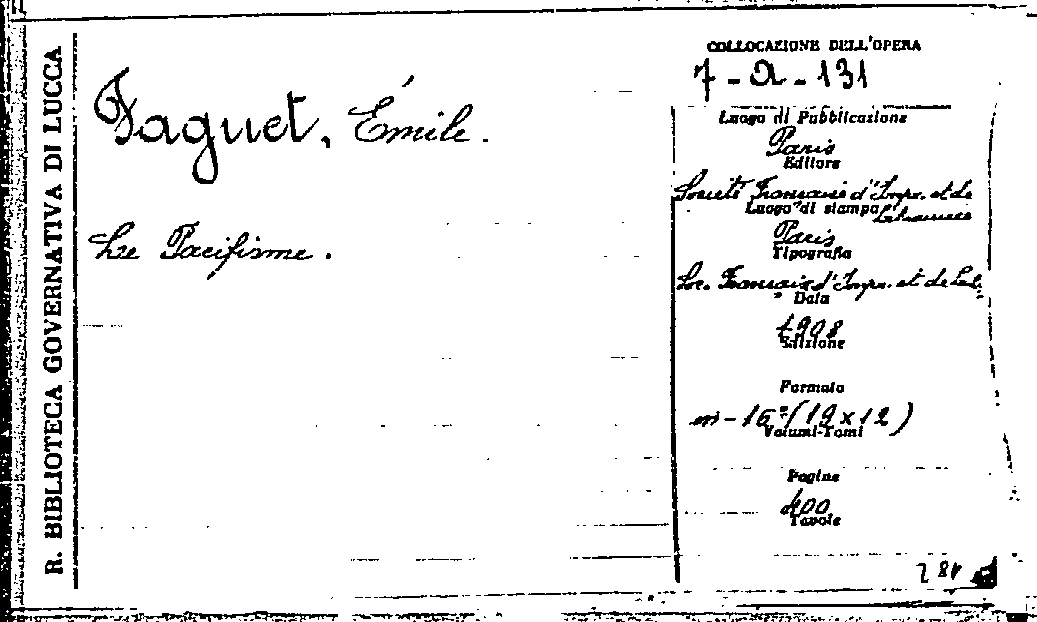 R. BIBLIOTECA GOVERNATIVA DI LUCCA
Faguet, Émile.
Le Pacifisme.
COLLOCAZIONE DELL'OPERA
7-A-131
Luogo di Pubblicazione
Paris
Editore
Société Française d'Impr. et de
Librairie
Luogo di stampa
Paris
Tipografia
Soc. Française d'Impr. et de Lib.
Data
1908
Edizione
Formato
in-16º (19x12)
Volumi-Tomi
Pagine
400
Tavole